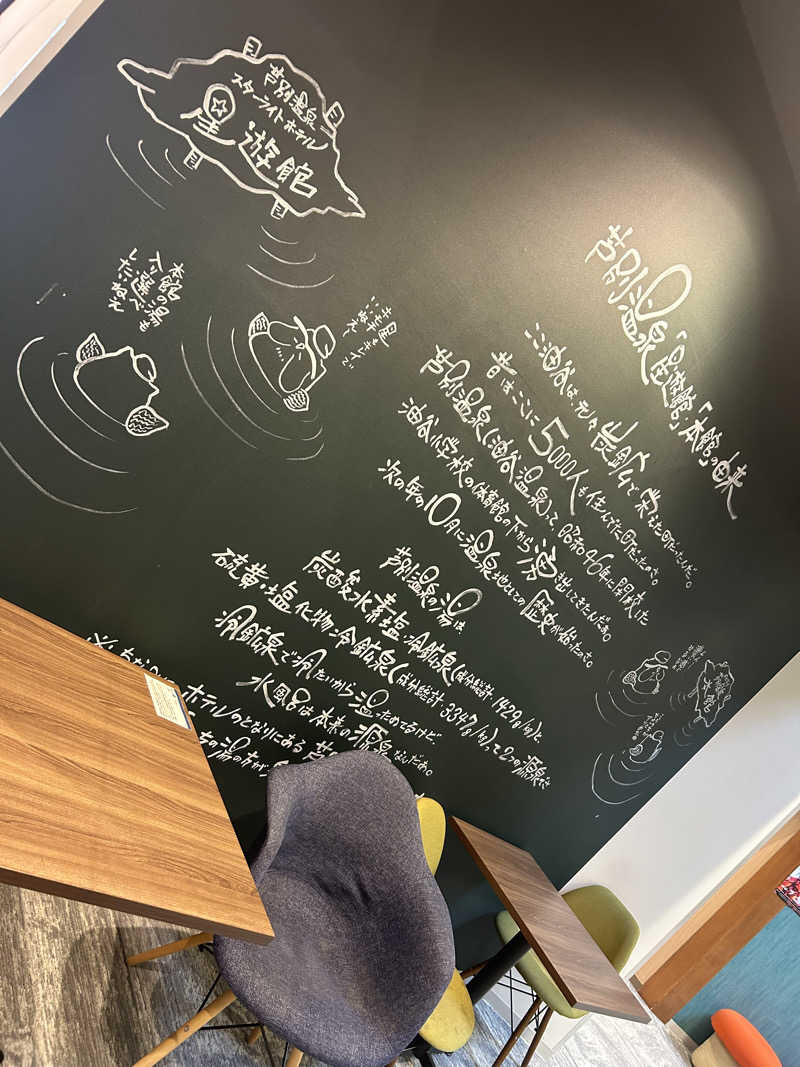 芦別温泉
スターライトホテル
星遊館
本館の湯も
入り選べ
芦別温泉「星遊館」「本館」の由来
ここ油谷は元々炭鉱で栄えた町だったんだ。
昔はここに5000人も住んでた町だったのさ。
芦別温泉(油谷温泉)って、昭和46年に閉校した
油谷小学校の体育館の下から湯が出てきたんだあ。
次の年の10月に温泉地としての歴史が始ったのさ。
芦別温泉の湯は、
炭酸水素塩冷鉱泉(成分総計1.429g/kg)と
硫黄塩化物冷鉱泉(成分総計3.347g/kg)って2つの源泉は
冷鉱泉で冷たいから温っためてるけど
水風呂は本来の源泉なんだあ。
ホテルのとなりにある
の湯の方が